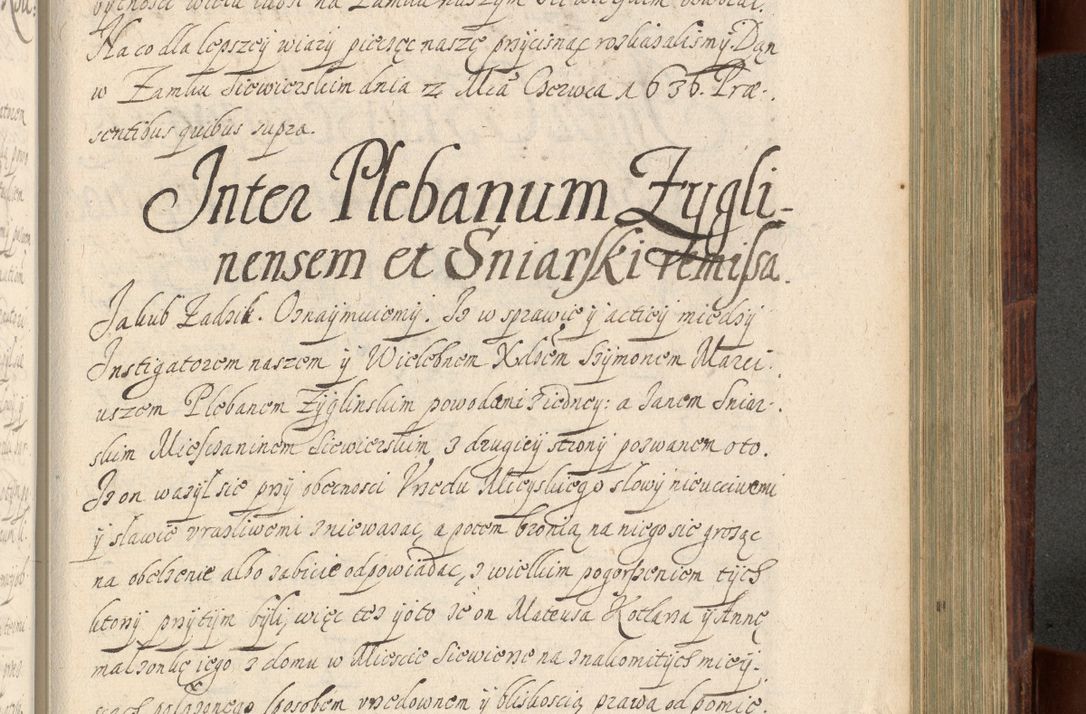 Na co dla lepszey wiary pieczęc naszę przycisnąc roskazalismy. Dan
w Zamku Siewierskim dnia 12 Mca Czerwca 1636. Præ-
sentibus quibus supra.
Inter Plebanum Zygli-
nensem et Sniarski remissa.
Jakub Zadzik. Oznaymuiemy. Iz w sprawie y actiey między
Instigatorem naszem y Wielebnem Xdzem Szymonem Marci-
uszem Plebanem Zyglinskim powodami z iedney: a Janem Sniar-
skim Miesczaninem Siewierskim z drugiey strony pozwanem oto.
Iz on wazyl sie przy obecnosci Vrzędu Mieyskiego słowy nieucciwemi
y sławie vrazliwemi zniewazac, a potem bronią na niego sie grosząc
na obelzenie albo zabicie odpowiadac, z wielkim pogorszeniem tych
ktorzy przytym byli, więc tez y oto ze on Mateusa Kotlarza y Annę
malzonkę iego z domu w Miescie Siewierze na znakomitych miey-
scach położonego sposobem vrzędownem y bliskoscią prawa od pomie-